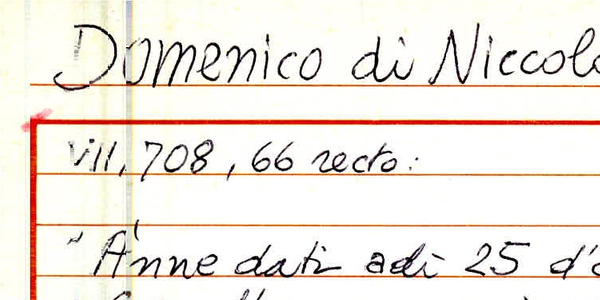 Domenico di Niccolò
VIII, 708, 66 recto:
"Ànne dati adì 25 d'